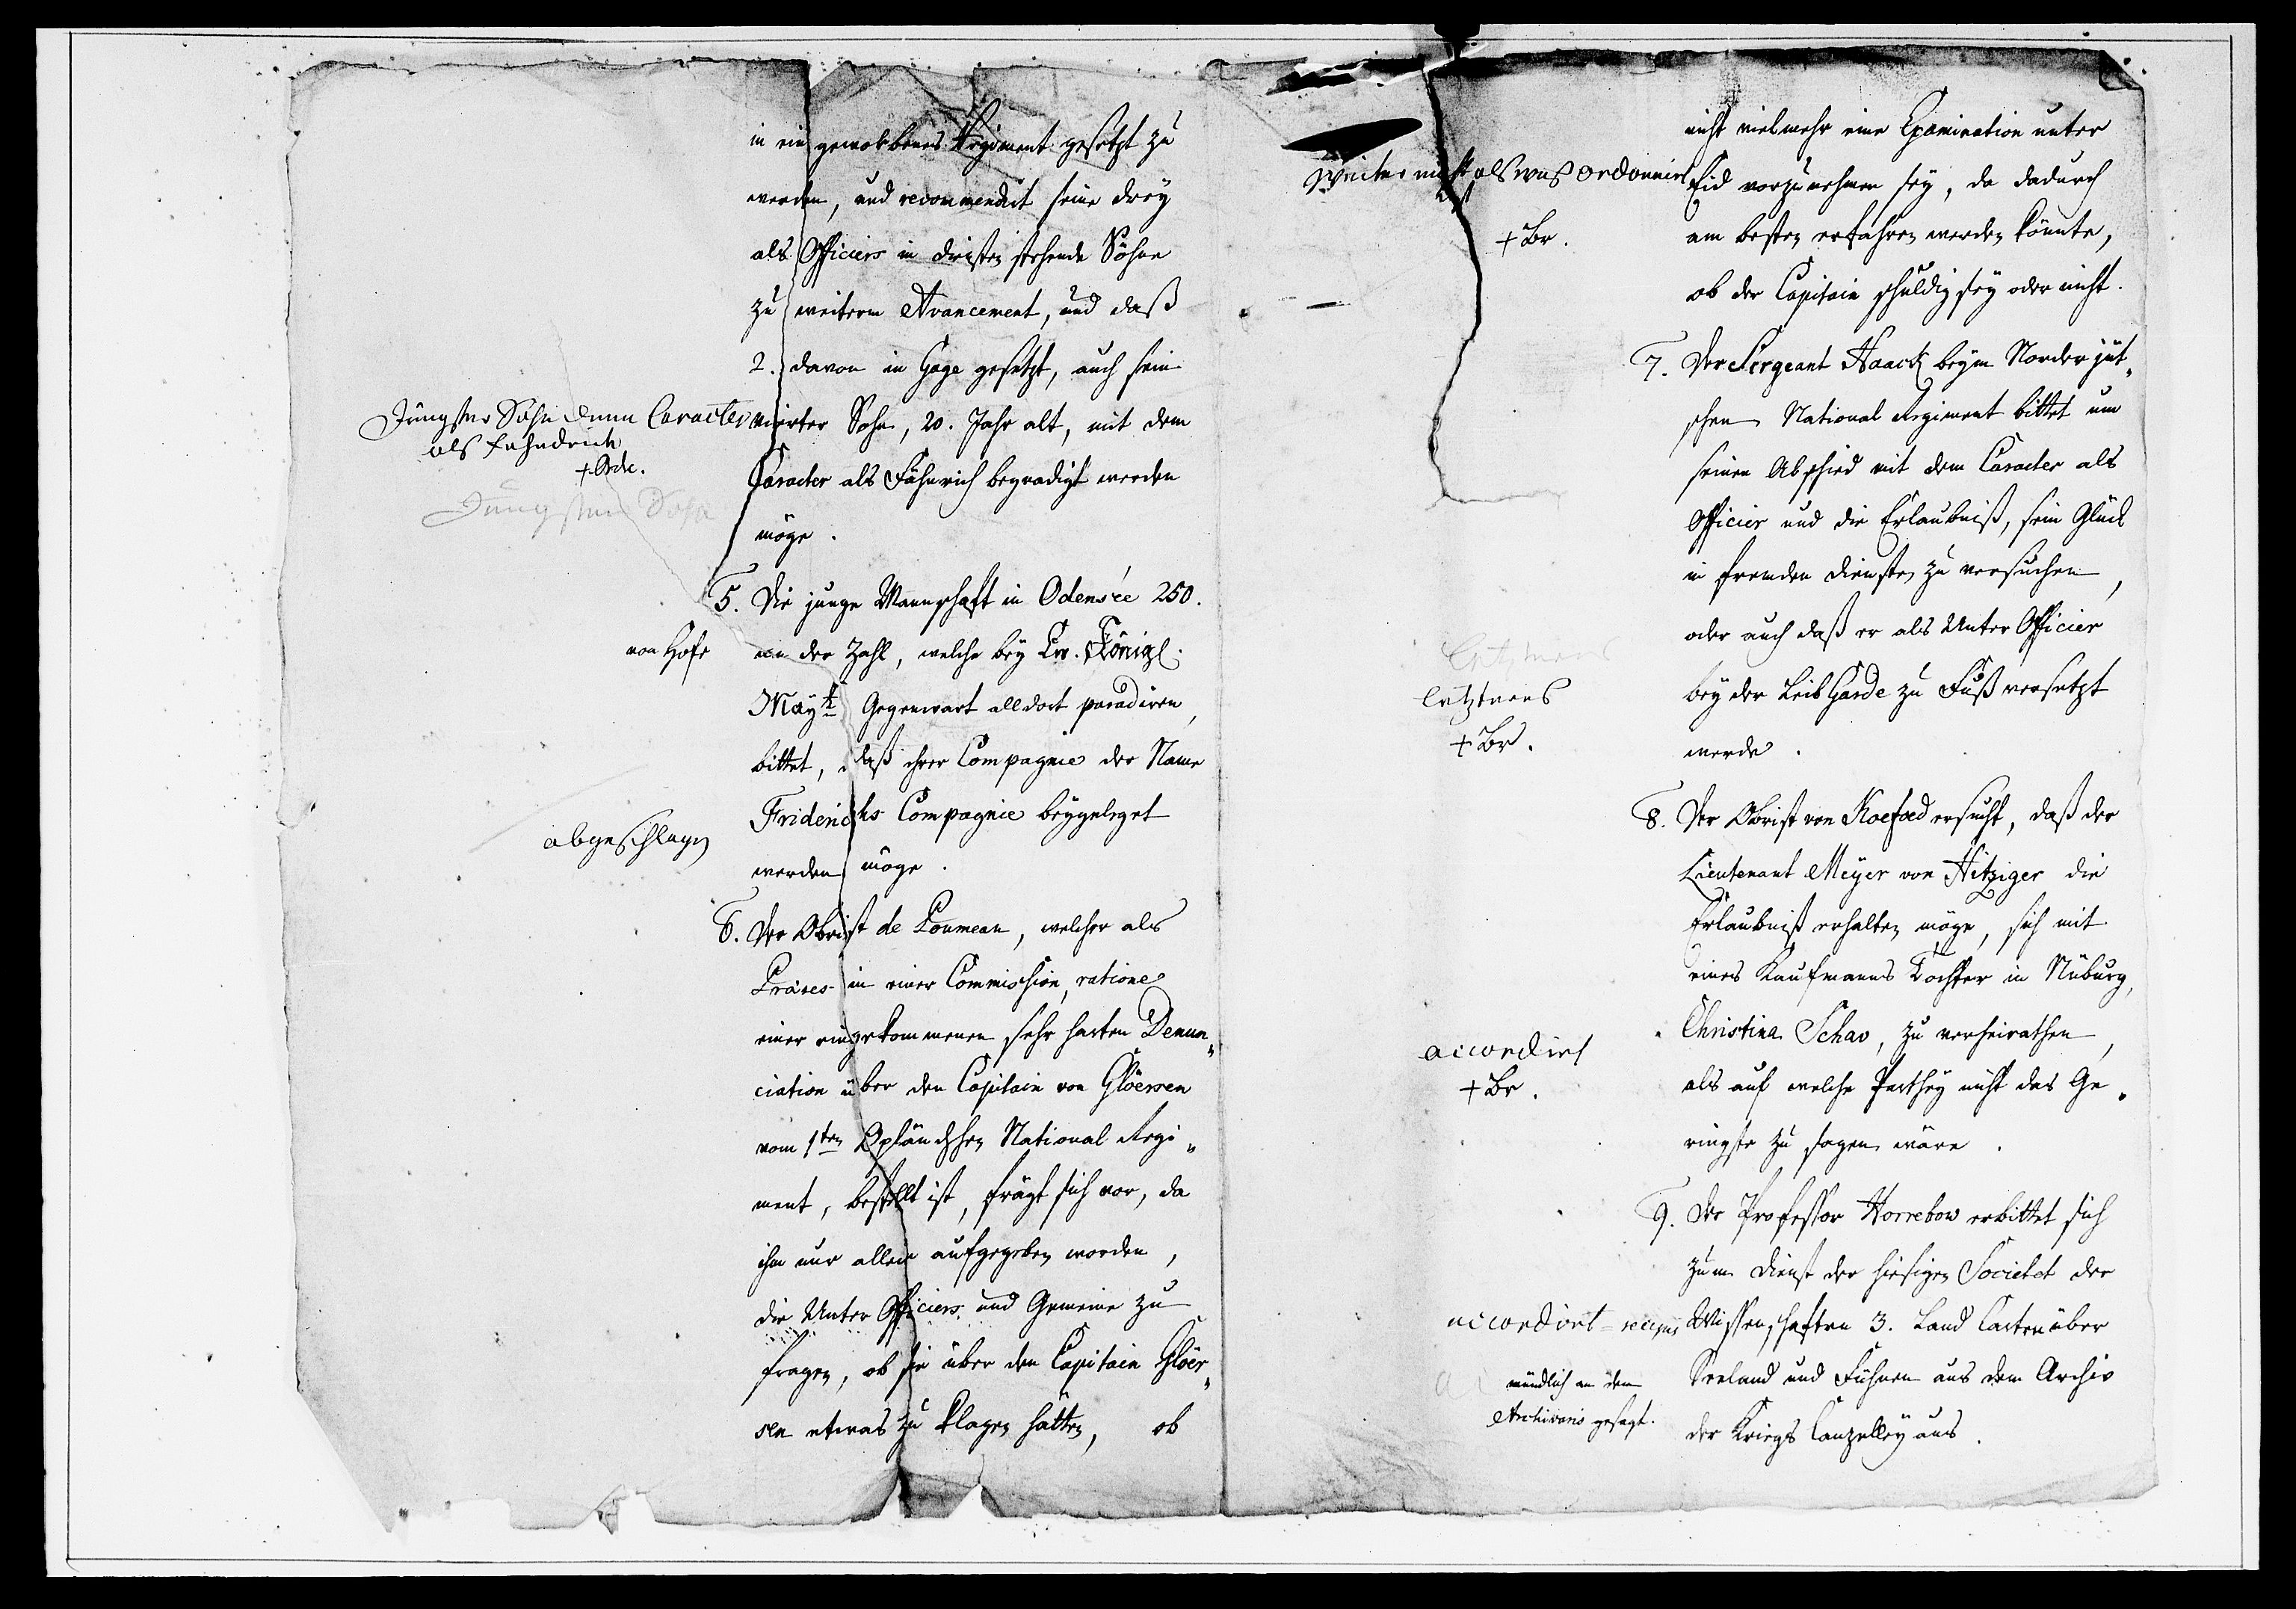 in ein geworbenes Regiment gesetzt zu
werden, und recommendirt seine drey
als Officiers in dinsten stehende Söhne
zu weiterm Avancement, und daß
2. davon in Gage gesetzt, auch sein
vierter Sohn, 20. Jahr alt, mit dem
Caracter als Fähnrich begnadigt werden
möge.
Jüngster Sohn denn Caracter
als Fehndrich
Jüngsten Sohn
5. Die junge Mannschaft in Odensée 250.
an der Zahl, welche bey Ew. Königl.
May:t Gegenwart alldort paradiren,
bittet, daß ihrer Compagnie der Name
Friderichs Compagnie beygeleget
werden möge.
von Hofe
abgeschlagen
6. Der Obrist de Poumeau, welcher als
Präses in einer Commission, ratione
einer eingekommenen sehr harten Denun„
ciation über den Capitain von Glöersen
vom 1ten Opländschen National Regi„
ment, bestellt ist, frägt sich vor, da
ihm nur allein aufgegeben worden,
die Unter Officiers und Gemeine zu
fragen, ob sie über den Capitain Glöer„
sen etwas zu klagen hätten, ob
nicht vielmehr eine Examination unter
Eid vorzunehmen sey, da dadurch
am besten erfahren werden könnte,
ob der Capitain schuldig sey oder nicht.
Weiter nicht als was ordonnirt
ist
+ Br.
7. Der Sergeant Haack beym Norder jüt„
schen National Regiment bittet um
seinen Abschied mit dem Caracter als
Officier und die Erlaubniß, sein Glück
in fremden Diensten zu versuchen,
oder auch daß er als Unter Officier
bey der Leib Garde zu Fuß versetzt
werde.
letzteres
+ Br.
8. Der Obrist von Koefoed ersucht, daß der
Lieutenant Meyer von Hitziger die
Erlaubniß erhalten möge, sich mit
eines Kaufmanns Tochter in Nüburg,
Christina Schav, zu verheirathen,
als auf welche Parthey nicht das Ge„
ringste zu sagen wäre.
accordirt
+ Br.
9. Der Professor Horrebow erbittet sich
zum Dienst der hiesigen Societet der
Wissenschaften 3. Land Carten über
Seeland und Fühnen aus dem Archiv
der Kriegs Canzelley aus.
accordirt
mündlich an dem
Archivario gesagt.